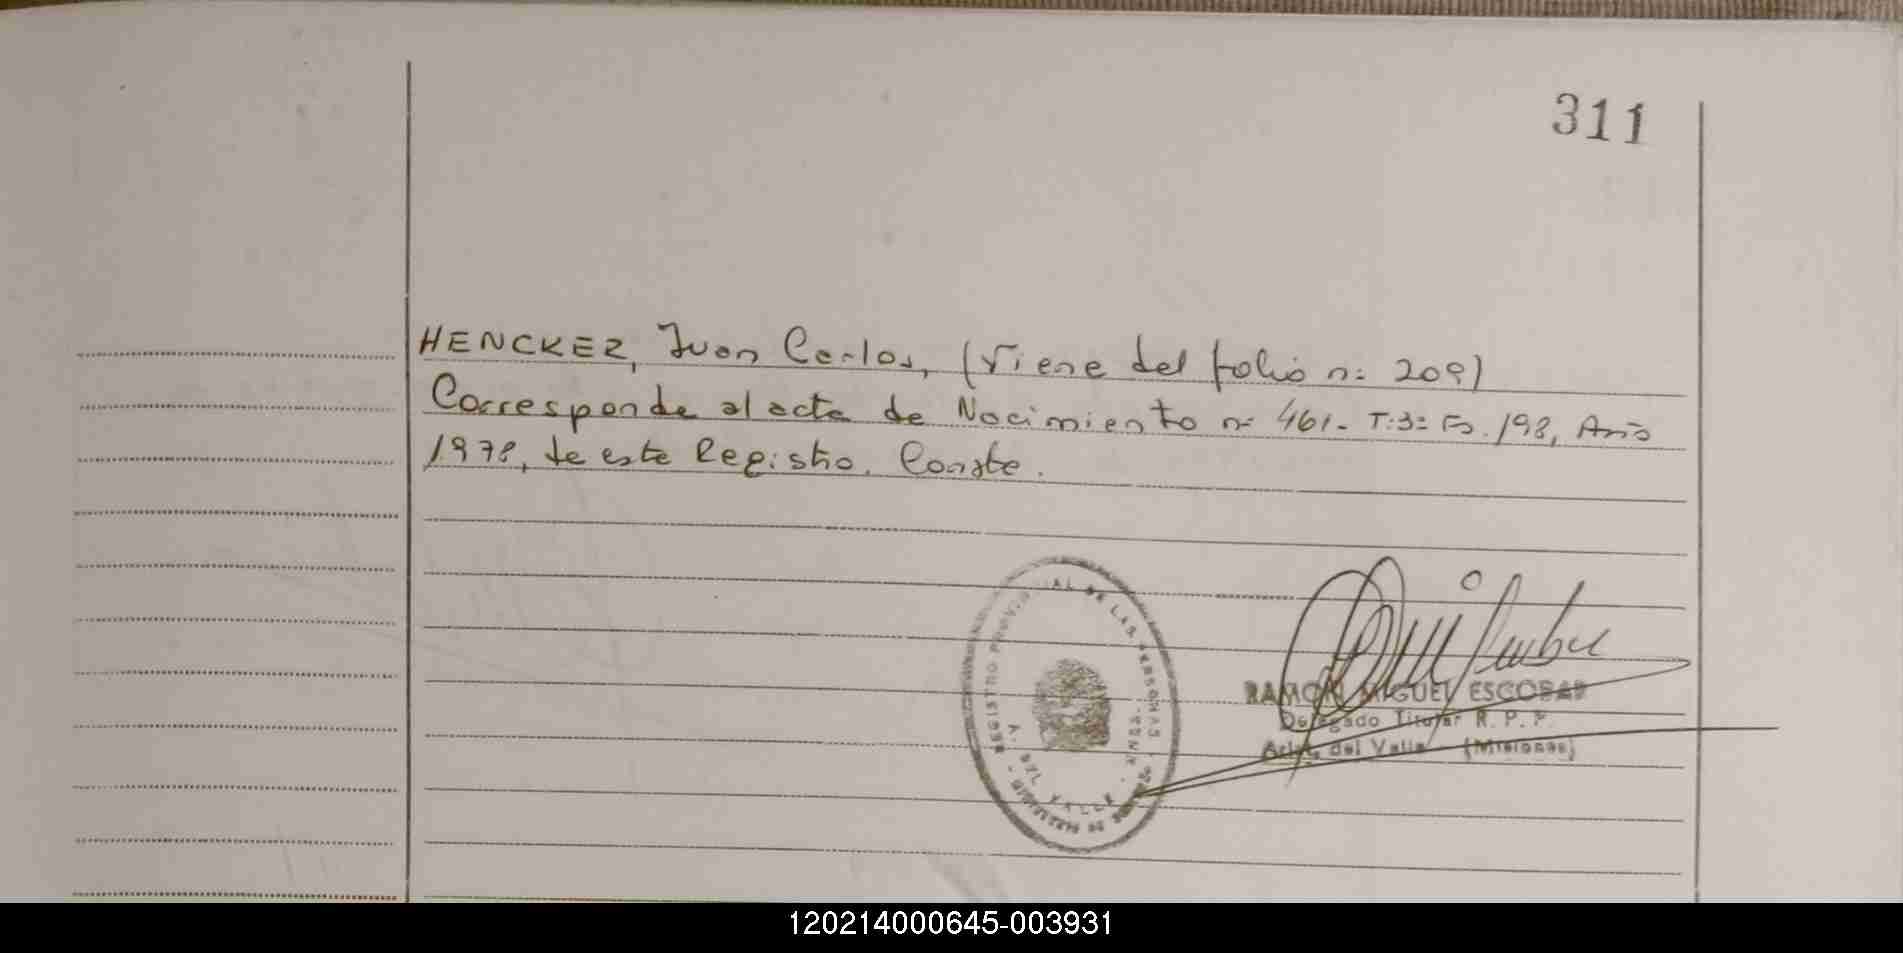 311
HENCKEZ, Juan Carlos, (Viene del folio n: 209)
Corresponde al acta de Nacimiento n: 461- T:3: Fº. 198, Año
1978, de este Registro. Conste.
REGISTRO PROVINCIAL DE LAS PERSONAS
A. DEL VALLE
RAMON MIGUEL ESCOBAR
Delegado Titular R. P. P.
del Valle (Misiones)
120214000645-003931